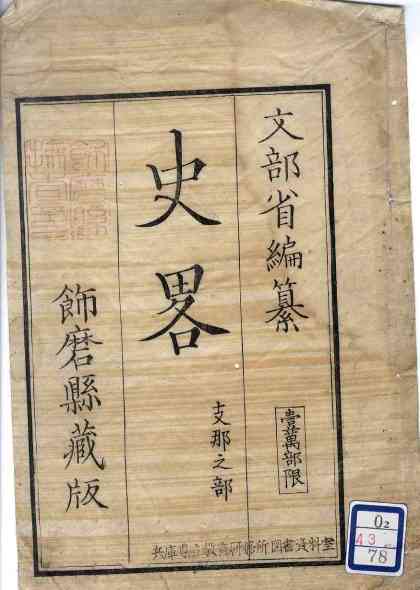 文部省編纂
壹萬部限
史畧
支那之部
飾磨縣藏版
兵庫県立教育研修所図書資料室
O2
43
78